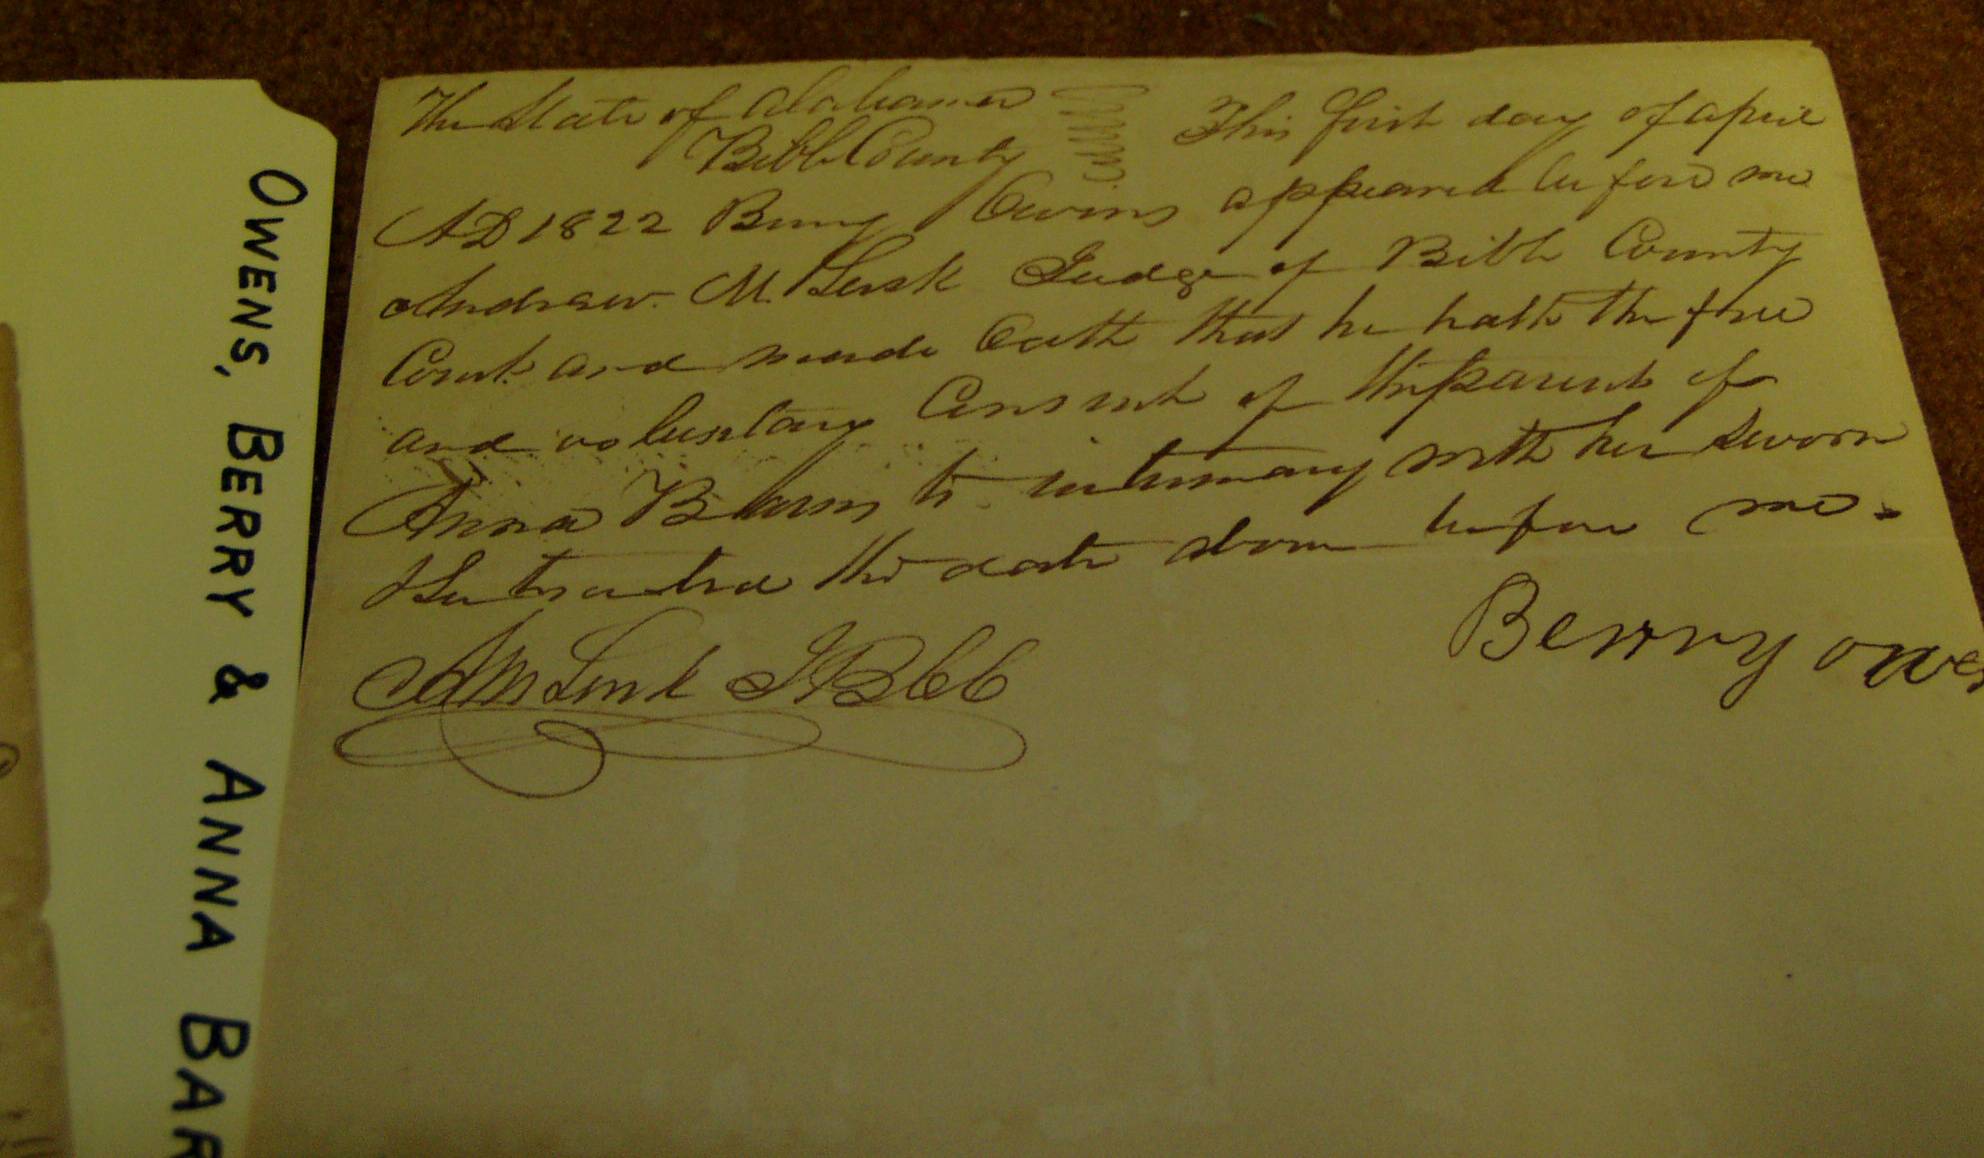 OWENS, BERRY & ANNA BAR
The State of Alabama
Bibb County
This first day of April
AD 1822 Berry Owens appeared before me
Andrew. M. Lusk Judge of Bibb County
Court and made Oath that he hath the free
and voluntary Consent of the parent of
Anna to intermary with her Sworn
the date above before me.
Berry owens
AM Lusk J B CC